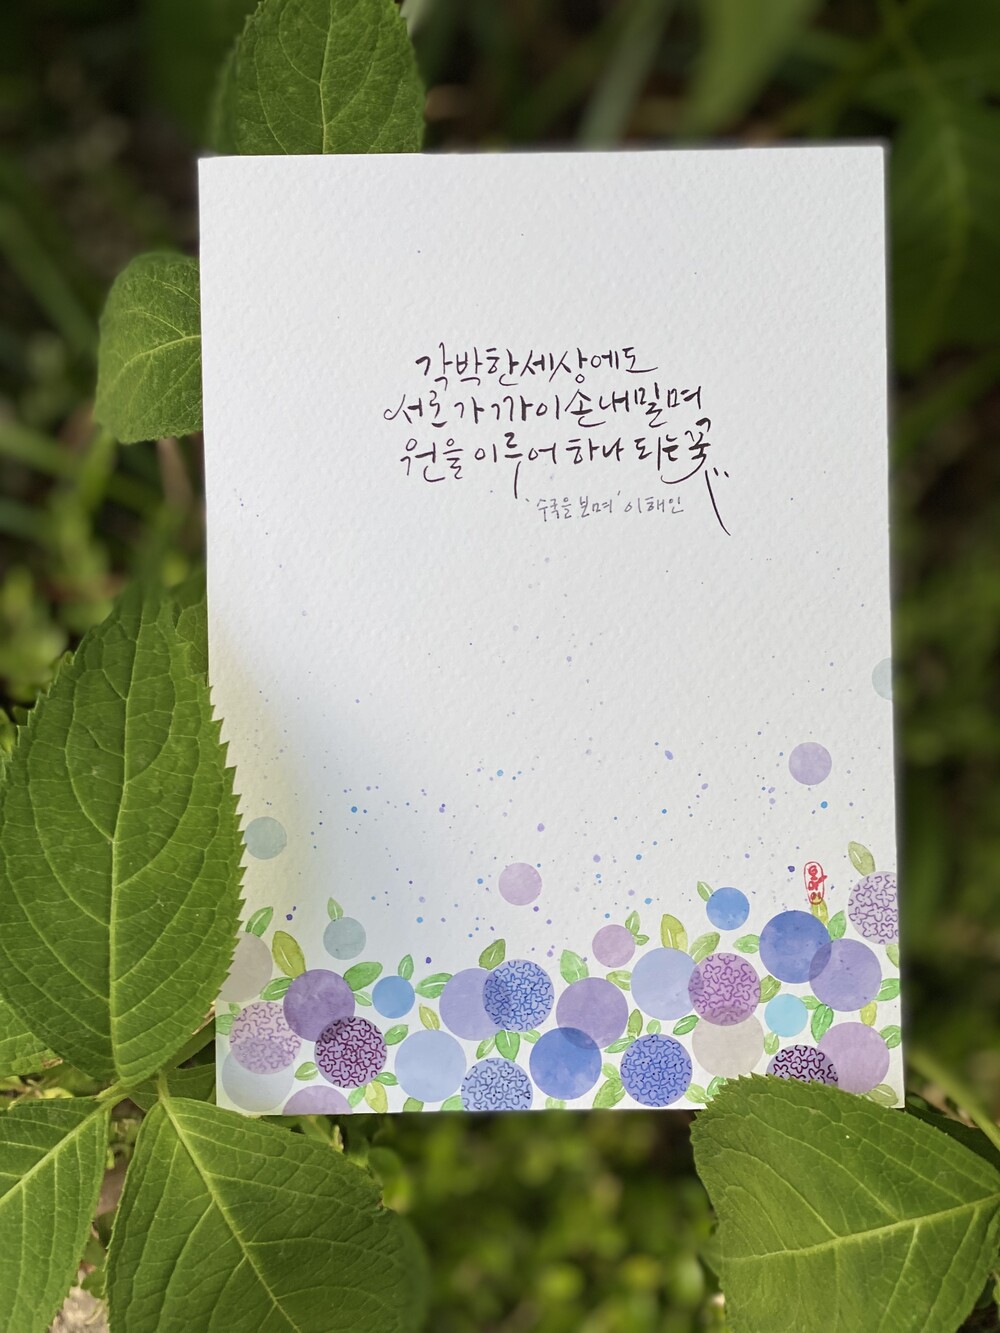 각박한 세상에도
서로 가까이 손 내밀며
원을 이루어 하나 되는 꽃
'수국을 보며' 이해인